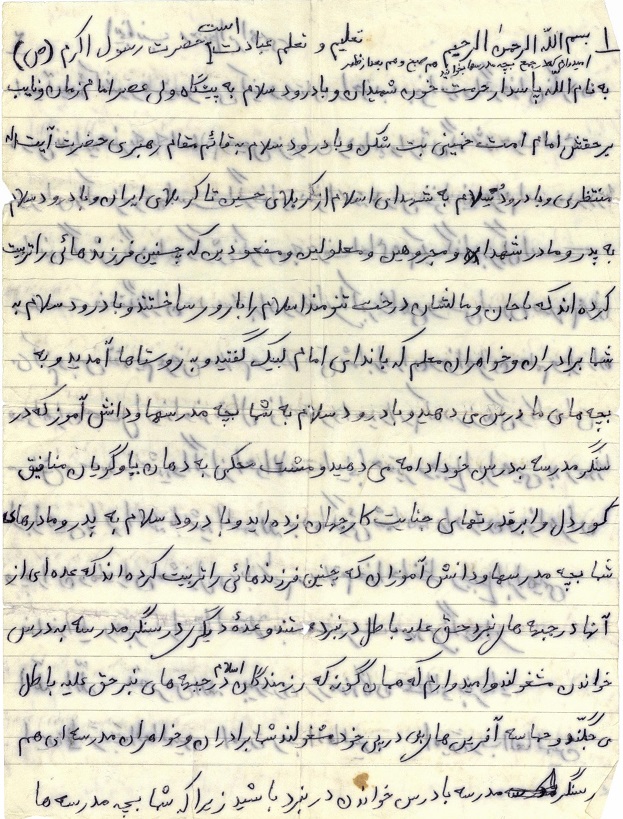 ۱ بسم الله الرحمن الرحیم تعلیم و تعلم عبادت است [حضرت رسول اکرم (ص)
امیدوارم که در جمع بچه مدرسها بخوانید هم صبح و هم بعد از ظهر
به نام الله پاسدار حرمت خون شهیدان و با درود سلام به پیشگاه ولی عصر امام زمان و نایب
بر حقش امام امت خمینی بت شکن و با درود سلام به قائم مقام رهبری حضرت آیت اله
منتظری و با درود سلام به شهدای اسلام از کربلای حسین تا کربلای ایران و با درود سلام
به پدر و مادر شهدا و مجروحین و معلولین و مفعودین که چنین فرزندهائی را تربیت
کرده اند که با جان و مالشان درخت تنومند اسلام را بارور ساختند و با درود سلام به
شما برادران و خواهران معلم که با ندای امام لبیک گفتید و به روستاها آمدید و به
بچه های ما درس می دهید و با درود سلام به شما بچه مدرسها و دانش آموز که در
سنگر مدرسه به درس خود ادامه می دهید و مشت محکمی به دهان یاوگویان منافیق
کوردل و ابرقدرتهای جنایت کار جهان زده اید و با درود سلام به پدر و مادرهای
شما بچه مدرسها و دانش آموزان که چنین فرزندهائی را تربیت کرده اند که عده ای از
آنها در جبهه های نبرد حق علیه باطل در نبرد هستند و عدۀ دیگری در سنگر مدرسه به درس
خواندن مشغولند و امیدوارم که همان گونه که رزمندگان اسلام در جبهه های نبر حق علیه باطل
می جنگند و حماسه آفرین های پی در پی خود مشغولند شما برادران و خواهران مدرسه ای هم
در سنگر مدرسه با درس خواندن در نبرد باشید زیرا که شما بچه مدرسه ها